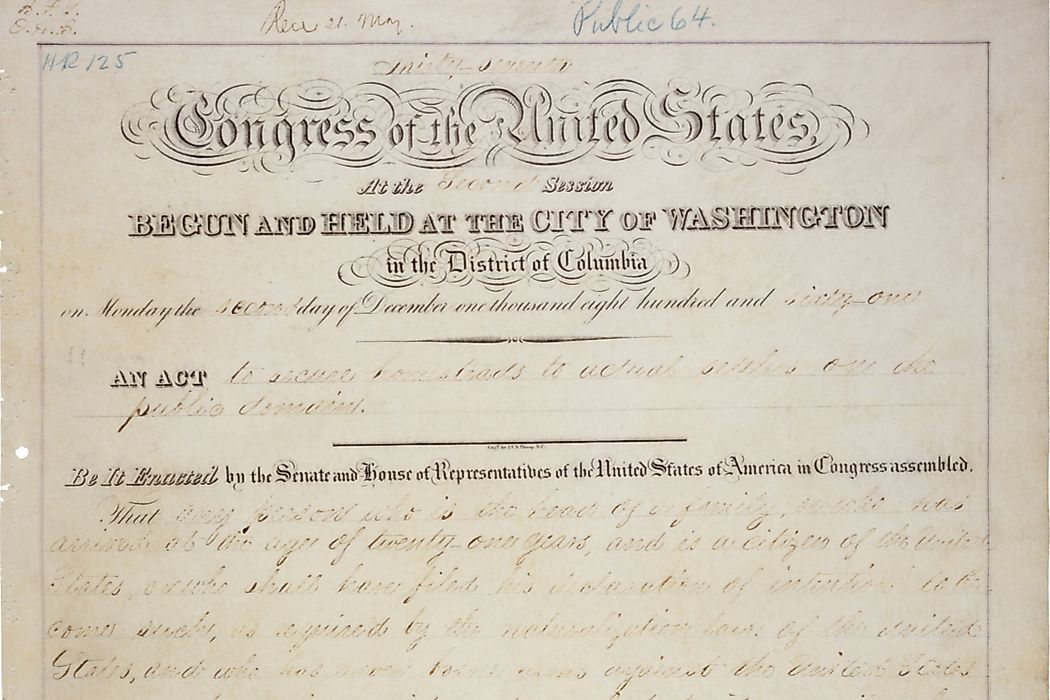 Rec 21. May.
Public 64.
HR 125
Thirty-seventh
Congress of the United States,
At the Second Session
BEGUN AND HELD AT THE CITY OF WASHINGTON
in the District of Columbia
on Monday the second day of December one thousand eight hundred and sixty-one
AN ACT to secure homesteads to actual settlers on the
public domain.
Be It Enacted by the Senate and House of Representatives of the United States of America in Congress assembled,
That any person who is the head of a family, or who has
arrived at the age of twenty-one years, and is a citizen of the United
States, or who shall have filed his declaration of intention to be-
come such, as required by the naturalization laws of the United
States, and who has never borne arms against the United States